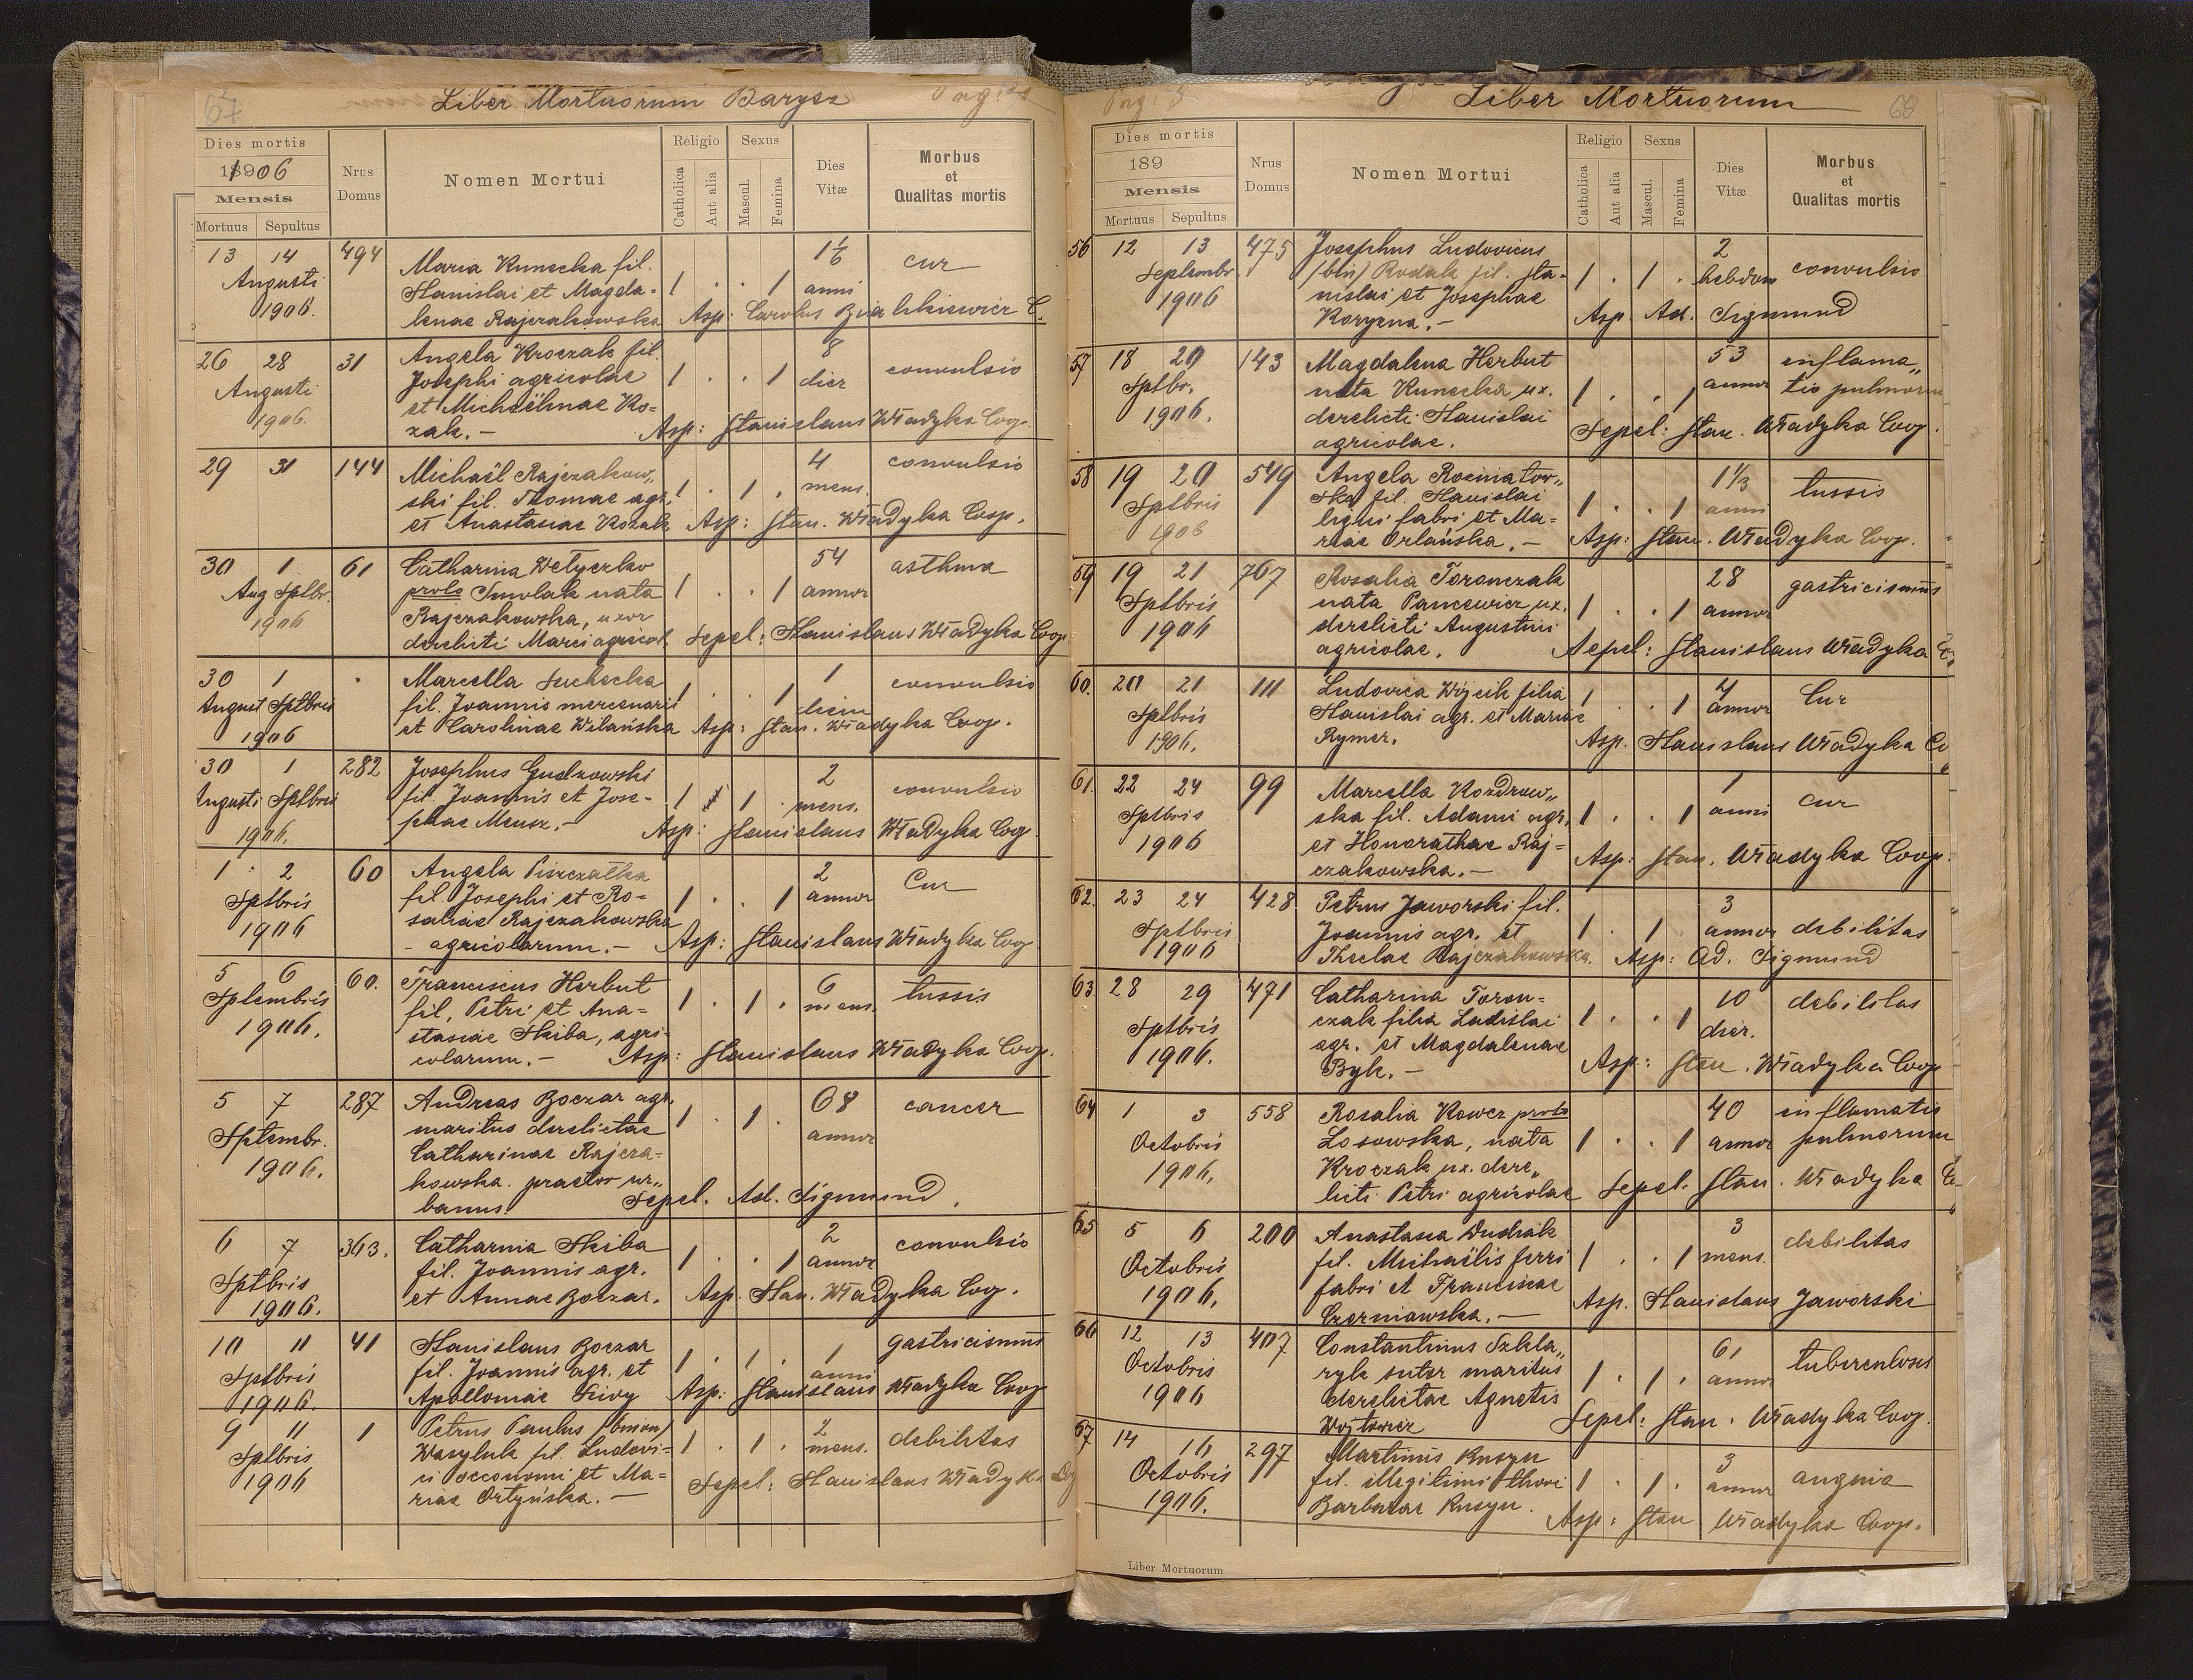 67
Liber Mortuorum Barysz
Dies mortis
1906
Mensis
Mortuus Sepultus
Nrus Domus
Nomen Mortui
Religio
Catholica
Aut alia
Sexus
Mascul.
Femina
Dies Vitæ
Morbus et Qualitas mortis
13 14 494 Maria Kunecka fil. 1 . . 1 1½ cur
Augusti Stanislai et Magda- anni
1906. lenae Rajczakowska Asp: Carolus
26 28 31 Angela Kroczak fil. 8 convulsio
Augusti Josephi agricolae 1 . . 1 dier
1906. et Michaëlinae Ko-
zak.- Asp: Stanislaus Władyka Coop.
29 31 144 Michaël Rajczakow„ 4 convulsio
ski fil. Thomae agr. 1 . 1 . mens.
et Anastasiae Kozak Asp: Stan. Władyka Coop.
30 1 61 Catharina Wetyczko 54 asthma
Aug Sptbr. proto Smolak nata 1 . . 1 annor
1906 Rajczakowska, uxor
derelicti Marci agricol. Sepel: Stanislaus Władyka Coop
30 1 . Marcella Suchecka 1 convulsio
August Sptbris fil. Joannis mercenarii 1 . . 1 diem
1906 et Carolinae Wilańska Asp: Stan. Władyka Coop.
30 1 282 Josephus Gudzowski 2 convulsio
Augusti Sptbris fil. Joannis et Jose- 1 1 . mens.
1906. phae Meusz.- Asp: Stanislaus Władyka Coop
1 2 60 Angela Piszczatka 2 Cur
Sptbris fil. Josephi et Ro- 1 . . 1 annor
1906 saliae Rajczakowska
agricolarum.- Asp: Stanislaus Władyka Coop
5 6 60. Franciscus Herbut 6 tussis
Septembris fil. Petri et Ana- 1 . 1 . mens.
1906. stasiae Skiba, agri-
colarum.- Asp: Stanislaus Władyka Coop.
5 7 287 Andreas Boczar agr. 68 cancer
Septembr. maritus derelictae 1 . 1 . annor
1906. Catharinae Rajcza-
kowska. praetor ur„
banus. Sepel. Ad. Sigmund.
6 7 363. Catharina Skiba 2 convulsio
Sptbris fil. Joannis agr. 1 . . 1 annor
1906. et Annae Boczar. Asp. Stan. Władyka Coop.
10 11 41 Stanislaus Boczar 1 gastricismus
Sptbris fil. Joannis agr. et 1 . 1 . anni
1906. Apolloniae Siwy Asp: Stanislaus Władyka Coop
9 11 1 Petrus Paulus (binom) 2 debilitas
Sptbris Wasyluk fil. Ludovi- 1 . 1 . mens.
1906 ci oeconomi et Ma-
riae Ortyńska.- Sepel: Stanislaus Władyka Coop
68
Liber Mortuorum
Dies mortis
189
Mensis
Mortuus Sepultus
Nrus Domus
Nomen Mortui
Religio
Catholica
Aut alia
Sexus
Mascul.
Femina
Dies Vitæ
Morbus et Qualitas mortis
56 12 13 475 Josephus Ludovicus 2 convulsio
Septembr. (bin) Rodak fil. Sta- 1 . 1 . hebdom
1906 nislai et Josephae
Koryzna.- Asp. Ad. Sigmund
57 18 20 143 Magdalena Herbut 53 inflama„
Sptbr. nata Kunecka ux. 1 . . 1 annor tio pulmorum
1906. derelicti Stanislai
agricolae. Sepel: Stan. Władyka Coop.
58 19 20 549 Angela Rozniatow„ 1⅓ tussis
Sptbris ska fil. Stanislai 1 . . 1 anni
1906 ligni fabri et Ma-
riae Orlańska.- Asp: Stan. Władyka Coop.
59 19 21 767 Rosalia Toronczak 28 gastricismus
Sptbris nata Pancewicz ux. 1 . . 1 annor
1906 derelicti Augustini
agricolae. Sepel: Stanislaus Władyka
60. 20 21 111 Ludovica Wójcik filia 4 Cur
Sptbris Stanislai agr. et Mariae 1 . . 1 annor
1906. Rymer. Asp. Stanislaus Władyka
61. 22 24 99 Marcella Kozdrow„ 1 cur
Sptbris ska fil. Adami agr. 1 . . 1 anni
1906 et Honorathae Raj-
czakowska.- Asp: Stan. Władyka Coop.
62. 23 24 428 Petrus Jaworski fil. 3 debilitas
Sptbris Joannis agr. et 1 . 1 annor
1906 Theclae Rajczakowska. Asp: Ad. Sigmund
63. 28 29 471 Catharina Toron- 10 debilitas
Sptbris czak filia Ladislai 1 . . 1 dier.
1906. agr. et Magdalenae
Byk.- Asp: Stan. Władyka Coop
64 1 3 558 Rosalia Kowcz proto 40 inflamatio
Octobris Losowska, nata 1 . . 1 annor pulmorum
1906. Kroczak ux. dere„
licti Petri agricolae Sepel. Stan. Władyka
65 5 6 200 Anastasia Dudziak 3 debilitas
Octobris fil. Michaëlis ferri 1 . . 1 mens.
1906. fabri et Franciscae
Czerniawska.- Asp. Stanislaus Jaworski
66 12 13 407 Constantinus Szkla„ 61 tuberculosis
Octobris ryk sutor maritus 1 . 1 . annor
1906 derelictae Agnetis
Wojtowicz Sepel: Stan. Władyka Coop.
67 14 16 297 Martinus Kusyn 3 angina
Octobris fil. illegitimi thori 1 . 1 . annor
1906. Barbarae Kusyn. Asp: Stan Władyka Coop.
Liber Mortuorum